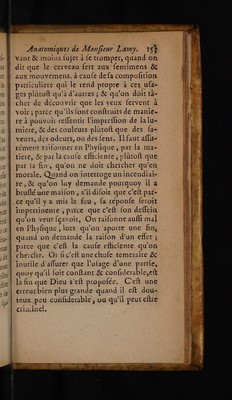 Anatomiques de Monsieur Lamy. 153
vant & moins sujet à se tromper, quand on
dit que le cerveau sert aux sentimens &
aux mouvemens, à cause de sa composition
particuliere qui le rend propre à ces usa-
ges plûtost qu'à d'autres ; & qu'on doit tâ-
cher de découvrir que les yeux servent à
voir ; parce qu'ils sont construits de manie-
re à pouvoir ressentir l'impression de la lu-
miere, & des couleurs plûtost que des sa-
veurs, des odeurs, ou des sens. Il faut assu-
rément raisonner en Physique, par la ma-
tiere, & par la cause efficiente, plûtost que
par la fin, qu'on ne doit chercher qu'en
morale. Quand on interroge un incendiai-
re, & qu'on luy demande pourquoy il a
bruslé une maison, s'il disoit que c'est par-
ce qu'il y a mis le feu, sa réponse seroit
impertinente, parce que c'est son dessein
qu'on veut sçavoir. On raisonne aussi mal
en Physique, lors qu'on aporte une fin,
quand on demande la raison d'un effet ;
parce que c'est la cause efficiente qu'on
cherche. Or si c'est une chose temeraire &
inutile d'assurer que l'usage d'une partie,
quoy qu'il soit constant & considerable, est
la fin que Dieu s'est proposée. C'est une
erreur bien plus grande quand il est dou-
teux peu considerable, ou qu'il peut estre
criminel.